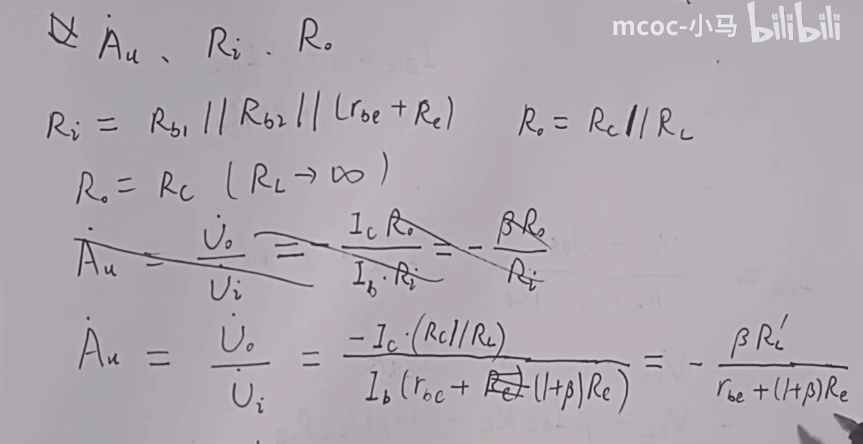 mcoc-小马 bilibili
Ȧu、Ri.Ro
Ri = Rb1 // Rb2 // (rbe + Re) Ro = Rc // RL
Ro = Rc (RL → ∞)
Ȧu = U̇o / U̇i = - Ic Ro / Ib · Ri = - βRo / Ri
Ȧu = U̇o / U̇i = -Ic·(Rc//RL) / Ib (rbe + (1+β)Re) = - βRL' / rbe + (1+β)Re